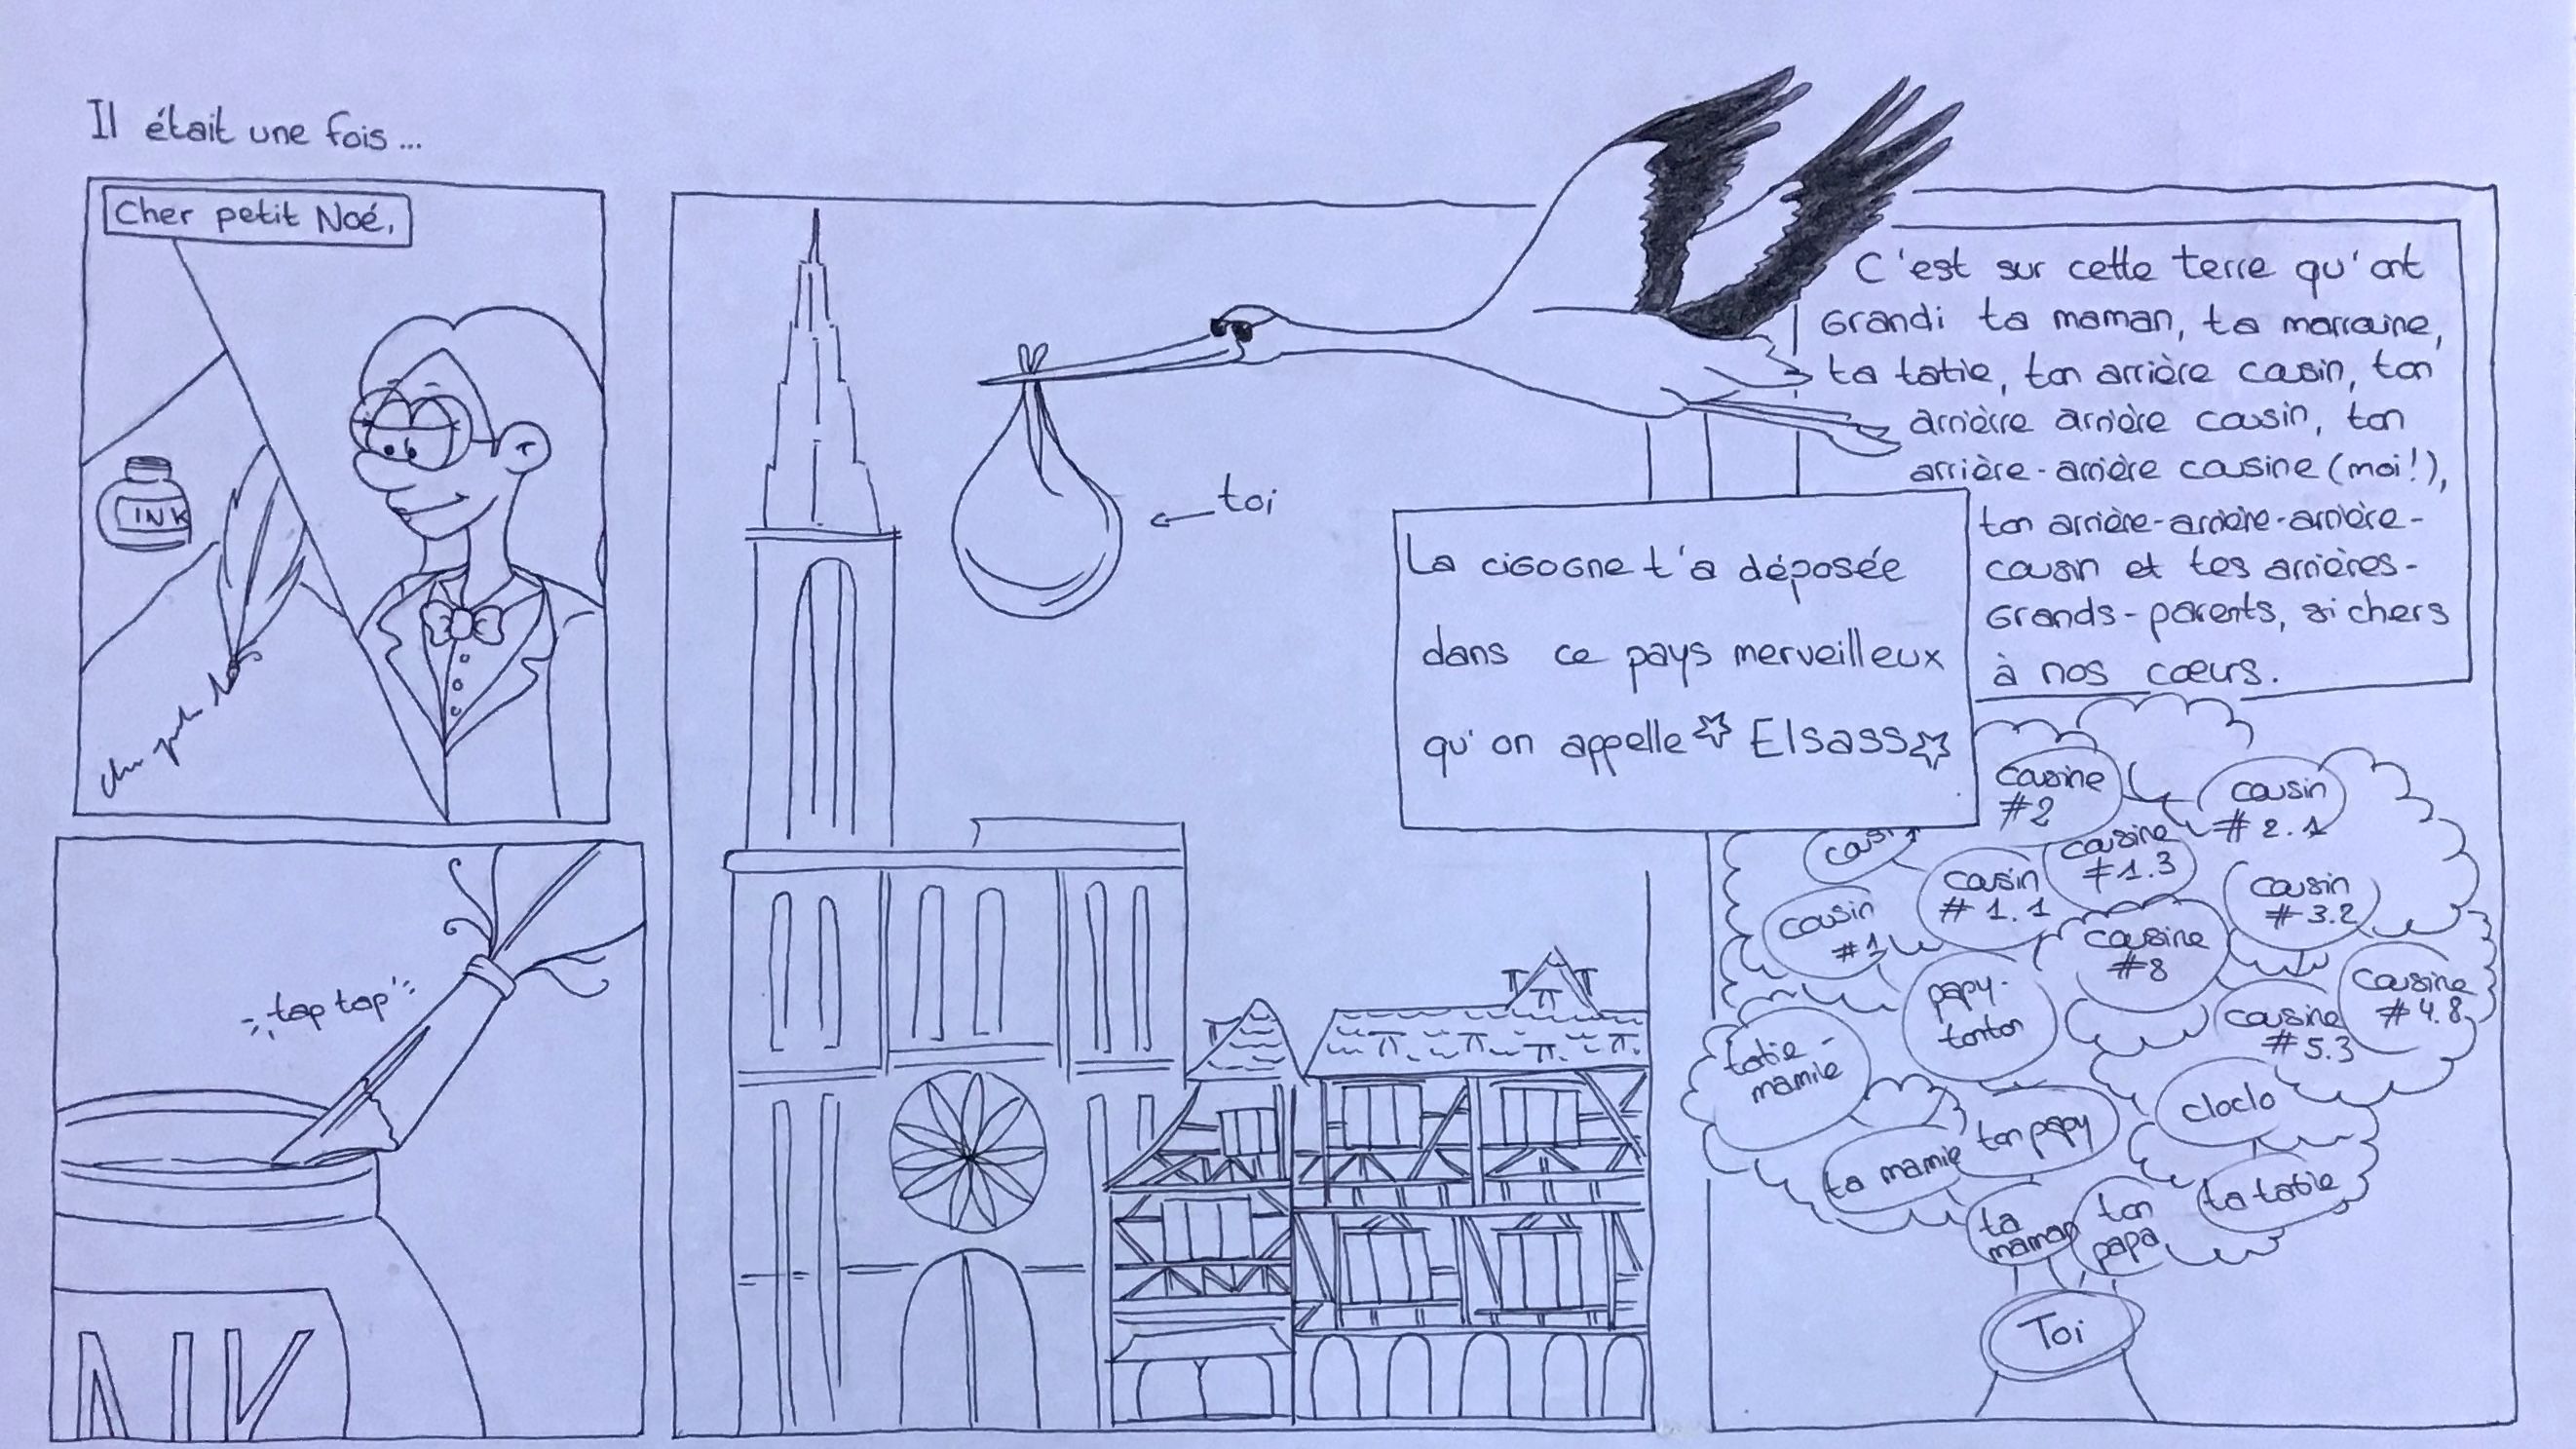 Il était une fois...
Cher petit Noé,
INK
tap tap
INK
toi
La cigogne t'a déposée
dans ce pays merveilleux
qu'on appelle ☆ Elsass ☆
C'est sur cette terre qu'ont
grandi ta maman, ta marraine,
ta tatie, ton arrière cousin, ton
arrièrre arrière cousin, ton
arrière-arrière cousine (moi!),
ton arrière-arrière-arrière-
cousin et tes arrières-
grands-parents, si chers
à nos cœurs.
cousine
#2
cousin
#2.1
cousine
#1.3
cousin
#1.1
cousin
#3.2
cousin
#1
cousine
#8
papy-
tonton
cousine
#4.8
cousine
#5.3
tatie-
mamie
cloclo
ta mamie
ton papy
ta tatie
ta
maman
ton
papa
Toi